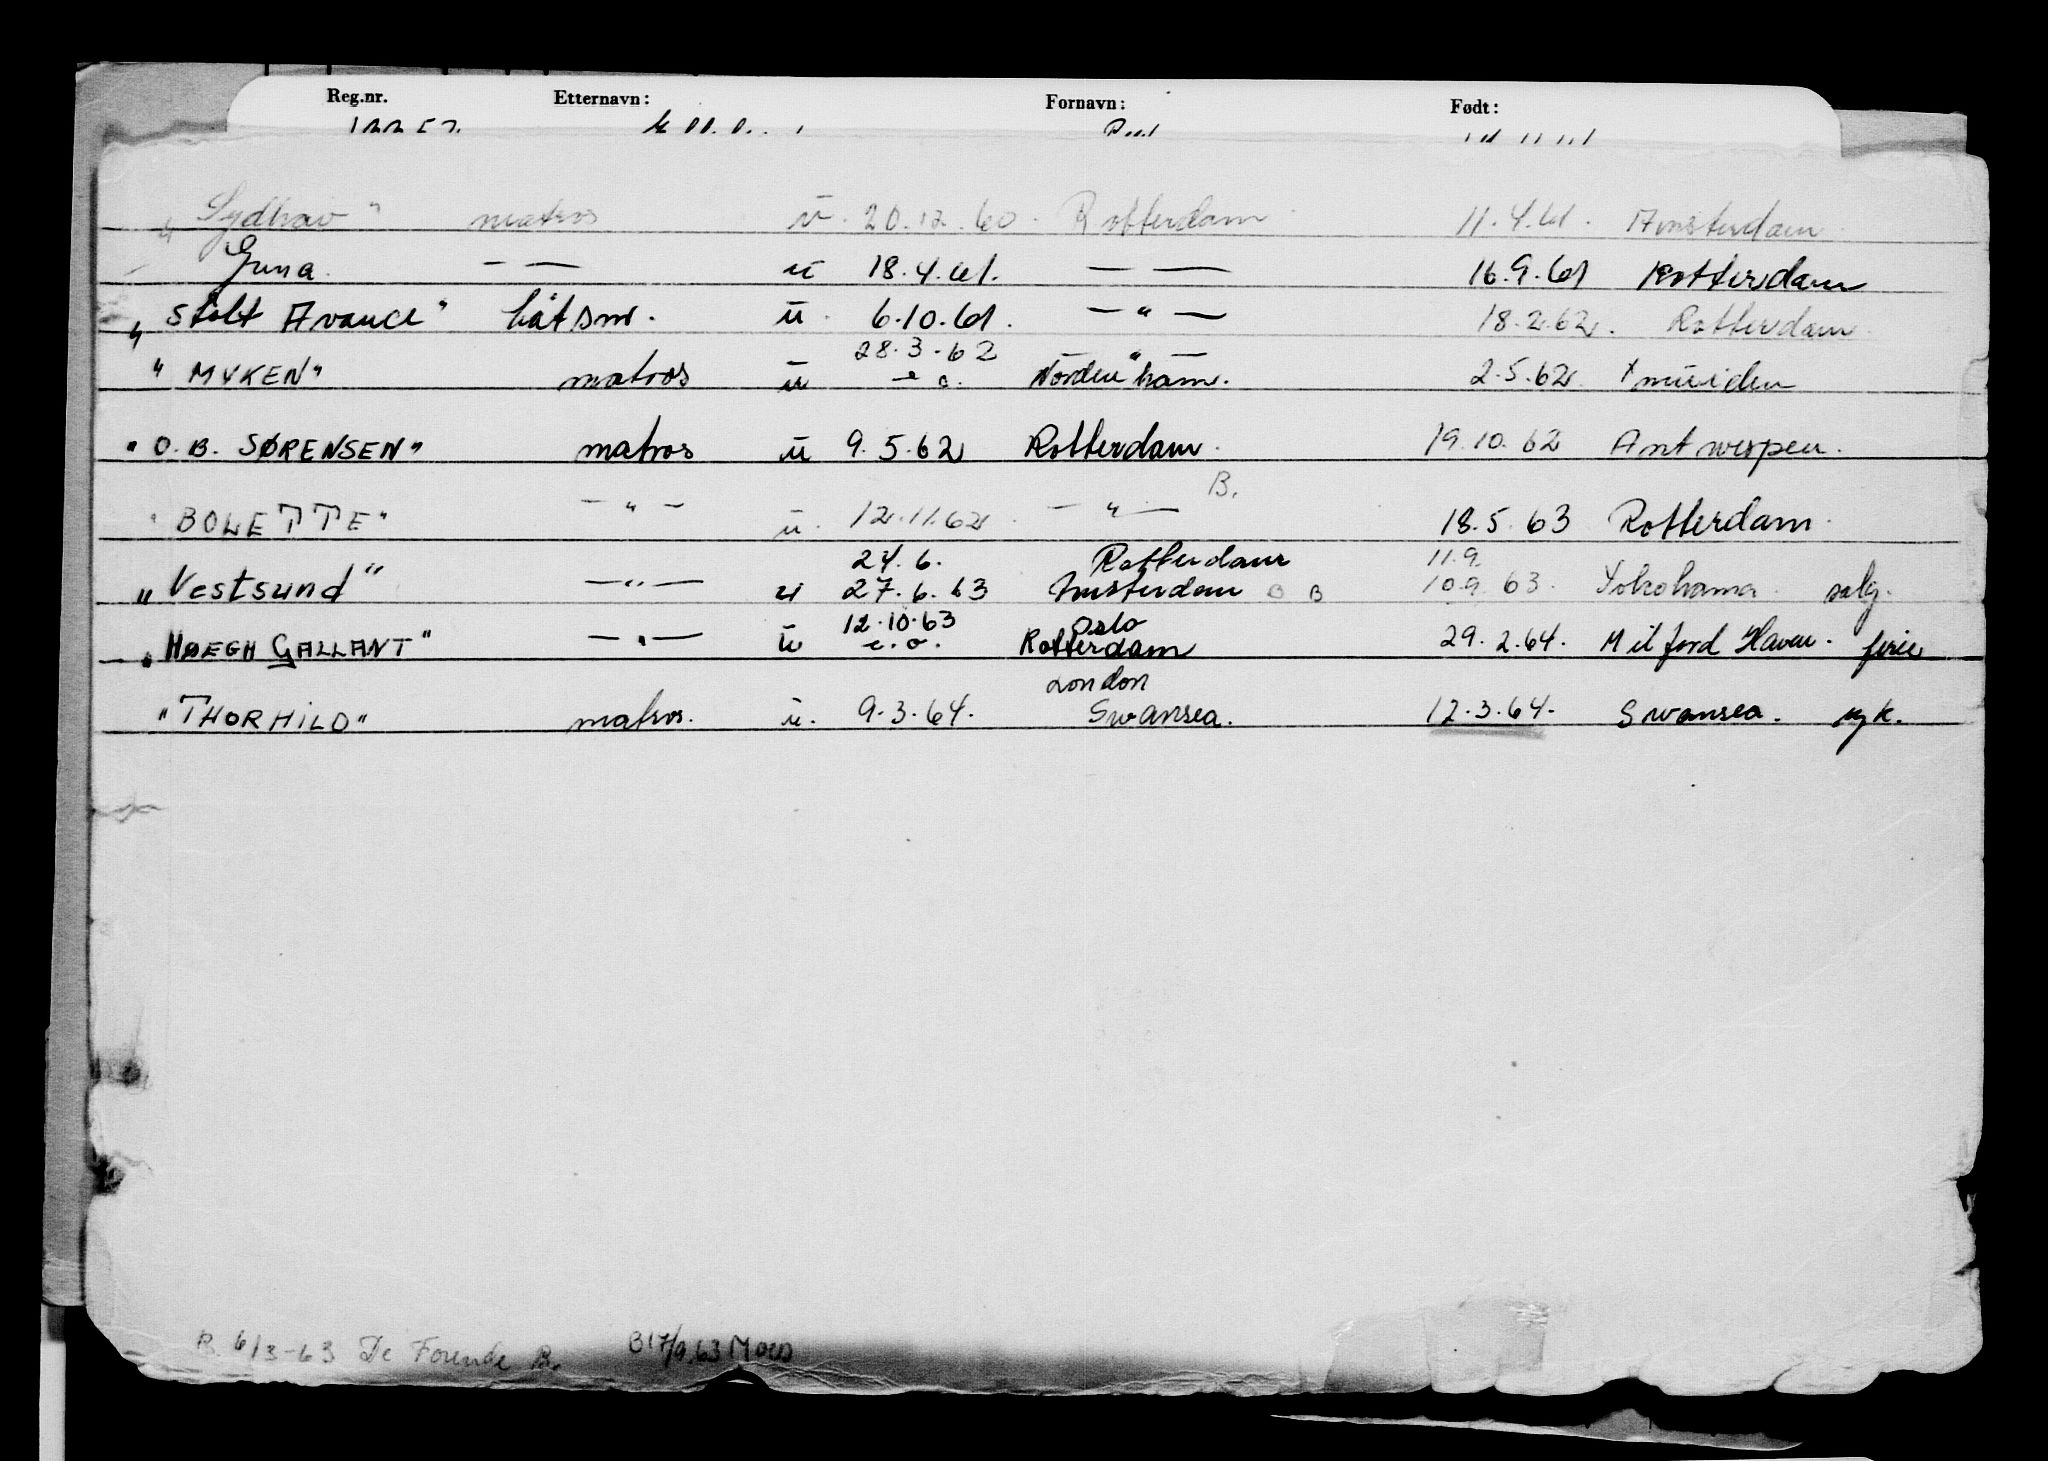 Reg.nr. Etternavn: Fornavn: Født:
"Sydhav" matros ū. 20.12.60. Rotterdam 11.4.61. Amsterdam
Guna. — — ū 18.4.61. — — 16.9.61 Rotterdam
"Stolt Avance" båtsm. ū. 6.10.61. — " — 18.2.62. Rotterdam.
28.3.62 — " —
"MYKEN" matros ū e.o. Nordenham. 2.5.62. Ymuiden
"O.B. SØRENSEN" matros ū 9.5.62 Rotterdam. 19.10.62 Antwerpen.
B.
"BOLETTE" — " — ū. 12.11.62. — " — 18.5.63 Rotterdam.
24.6. Rotterdam 11.9.
"Vestsund" — " — ū 27.6.63 Amsterdam B B 10.9.63. Yokohama. salg.
12.10.63 Oslo
"HØEGH GALLANT" — " — ū e.o. Rotterdam 29.2.64. Milford Haven. ferie
London
"THORHILD" matros. ū. 9.3.64. Swansea. 12.3.64. Swansea. syk.
B. 6/3-63 De Forende B. B17/9.63 Moss